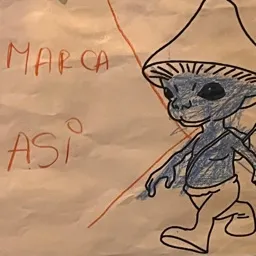 MARCA
ASi